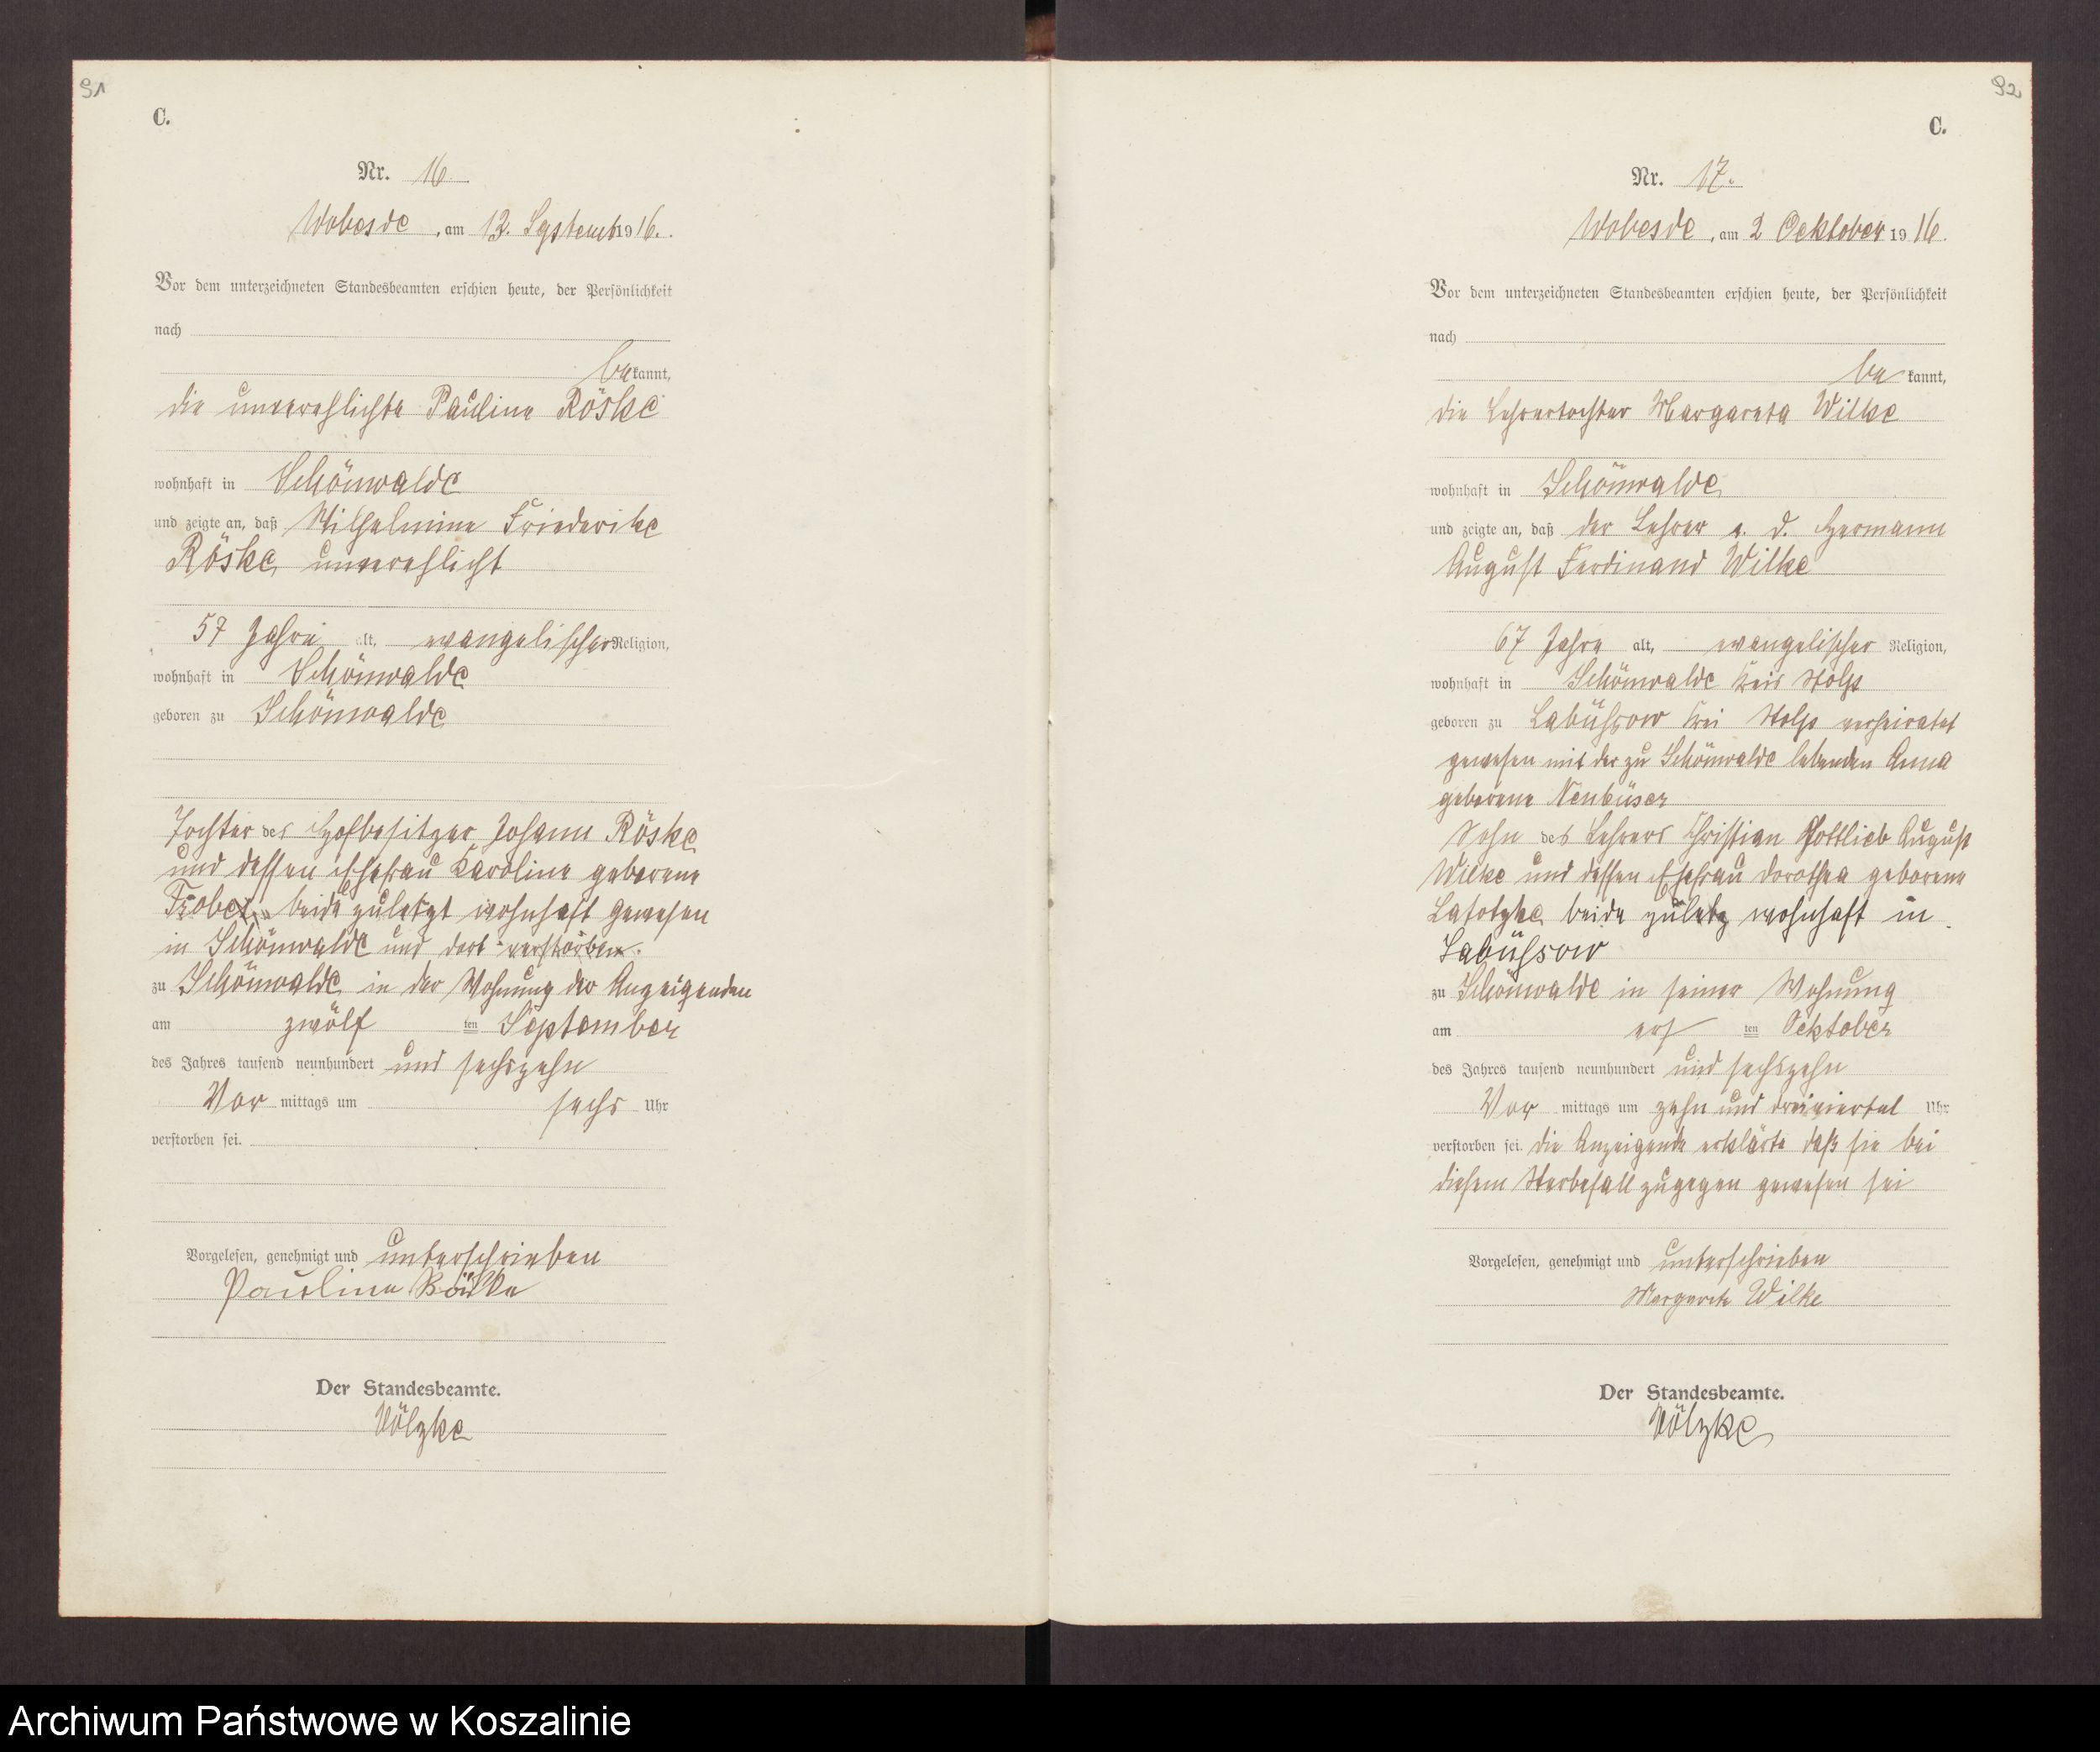 91
C.
Nr. 16
Wobesde, am 13. Septemb 1916.
Vor dem unterzeichneten Standesbeamten erschien heute, der Persönlichkeit
nach
be kannt,
die unverehlichte Pauline Röske
wohnhaft in Schönwalde
und zeigte an, daß Wilhelmine Friederike
Röske, unverehlicht
57 Jahre alt, evangelischer Religion,
wohnhaft in Schönwalde
geboren zu Schönwalde
Tochter des Hofbesitzer Johann Röske
und dessen Ehefrau Karoline geborene
beide zuletzt wohnhaft gewesen
in Schönwalde und dort verstorben.
zu Schönwalde in der Wohnung der Anzeigenden
am zwölf ten September
des Jahres tausend neunhundert und sechszehn
Vor mittags um sechs Uhr
verstorben sei.
Vorgelesen, genehmigt und unterschrieben
Pauline Röske
Der Standesbeamte.
Völzke
92
C.
Nr. 17.
Wobesde, am 2 Ocktober 1916.
Vor dem unterzeichneten Standesbeamten erschien heute, der Persönlichkeit
nach
be kannt,
die Lehrertochter Margareta Wilke
wohnhaft in Schönwalde
und zeigte an, daß der Lehrer a. D. Hermann
August Ferdinand Wilke
67 Jahre alt, evangelischer Religion,
wohnhaft in Schönwalde Kreis Stolp
geboren zu Labühsow Krei Stolp verheiratet
gewesen mit der zu Schönwalde lebenden Anna
geborene Neubüser
Sohn des Lehrers Christian Gottlieb August
Wilke und dessen Ehefrau Dorothea geborene
Latotzke beide zuletz wohnhaft in
Labühsow
zu Schönwalde in seiner Wohnung
am erst ten Ocktober
des Jahres tausend neunhundert und sechszehn
Vor mittags um zehn und dreiviertel Uhr
verstorben sei. die Anzeigende erklärte daß sie bei
diesem Sterbefall zugegen gewesen sei
Vorgelesen, genehmigt und unterschrieben
Margarete Wilke
Der Standesbeamte.
Völzke
Archiwum Państwowe w Koszalinie